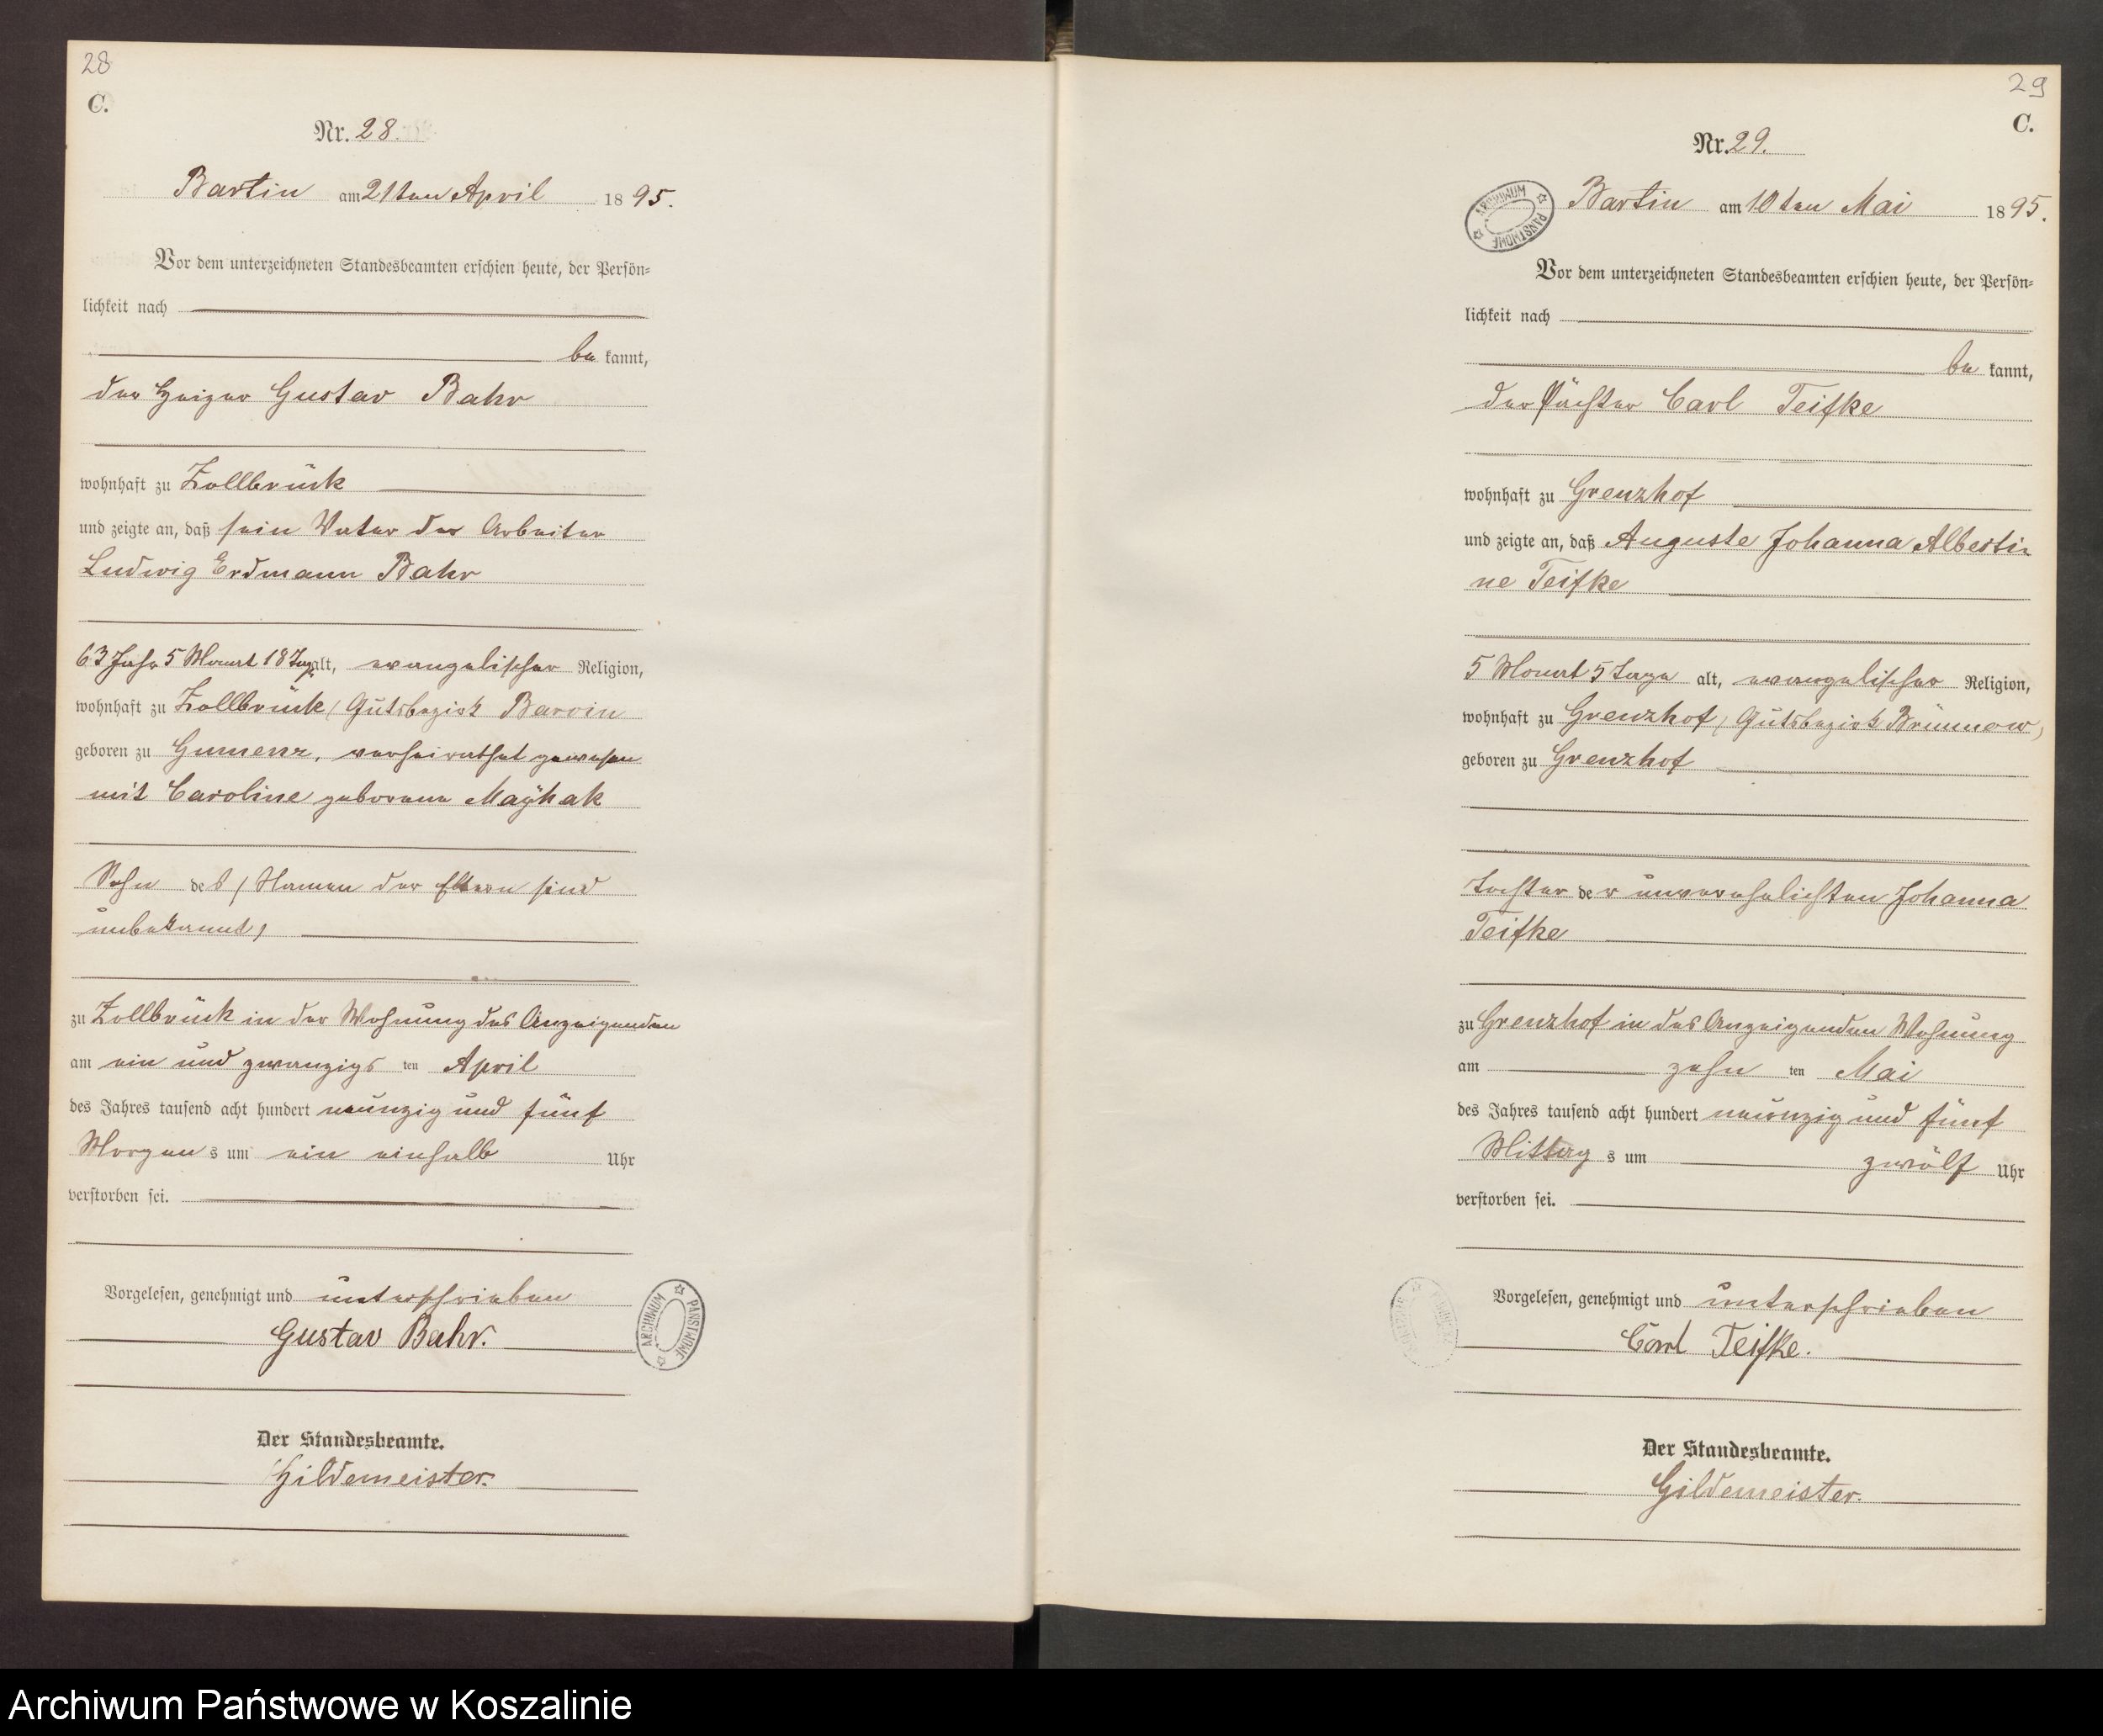 28
C.
Nr. 28.
Bartin am 21ten April 1895.
Vor dem unterzeichneten Standesbeamten erschien heute, der Persön-
lichkeit nach
be kannt,
der Heizer Gustav Bahr
wohnhaft zu Zollbrück
und zeigte an, daß sein Vater der Arbeiter
Ludwig Erdmann Bahr
63 Jahr 5 Monat 18 Tage alt, evangelischer Religion,
wohnhaft zu Zollbrück (Gutsbezirk Barvin
geboren zu Gumenz, verheirathet gewesen
mit Caroline geborene Maÿhak
Sohn des (Namen der Eltern sind
unbekannt)
zu Zollbrück in der Wohnung des Anzeigenden
am ein und zwanzigs ten April
des Jahres tausend acht hundert neunzig und fünf
Morgen s um ein einhalb Uhr
verstorben sei.
Vorgelesen, genehmigt und unterschrieben
Gustav Bahr.
Der Standesbeamte.
Gildemeister.
ARCHIWUM PAŃSTWOWE
29
C.
Nr. 29.
ARCHIWUM PAŃSTWOWE
Bartin am 10ten Mai 1895.
Vor dem unterzeichneten Standesbeamten erschien heute, der Persön-
lichkeit nach
be kannt,
der Pächter Carl Teifke
wohnhaft zu Grenzhof
und zeigte an, daß Auguste Johanna Alberti-
ne Teifke
5 Monat 5 Tage alt, evangelischer Religion,
wohnhaft zu Grenzhof (Gutsbezirk Brünnow)
geboren zu Grenzhof
Tochter der unverehelichten Johanna
Teifke
zu Grenzhof in des Anzeigenden Wohnung
am zehn ten Mai
des Jahres tausend acht hundert neunzig und fünf
Mittag s um zwölf Uhr
verstorben sei.
Vorgelesen, genehmigt und unterschrieben
Carl Teifke.
Der Standesbeamte.
Gildemeister.
Archiwum Państwowe w Koszalinie